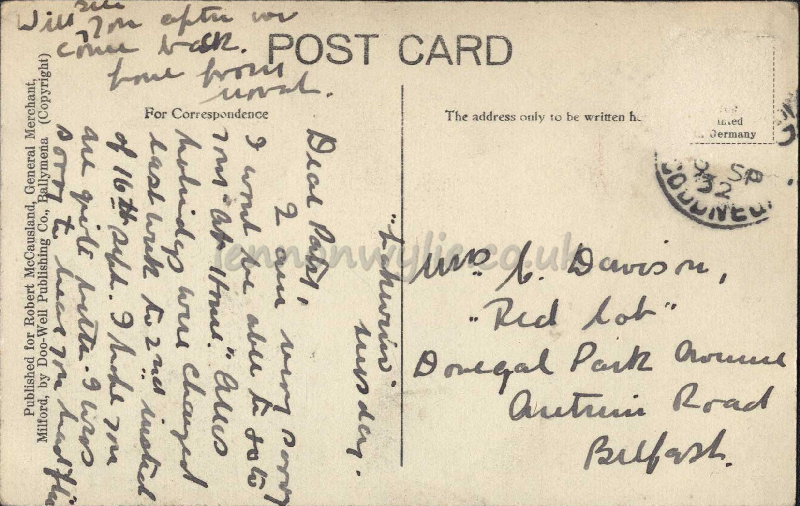 POST CARD
For Correspondence
The address only to be written he
inted
in Germany
SP
32
Published for Robert McCausland, General Merchant,
Milford, by Doo-Well Publishing Co., Ballymena (Copyright)
Tuesday.
Dear Patsy,
I am very sorry
I wont be able to go to
your "At Home." Alecs
holidays were changed
last week to 2nd insted
of 16th Sept. I hope you
are quite better. I was
sorry to hear you had flu
Will see
you after we
come back.
love from
Mrs C. Davison,
"Red Cot"
Donegal Park Avenue
Antrim Road
Belfast.
lennonwylie.co.uk